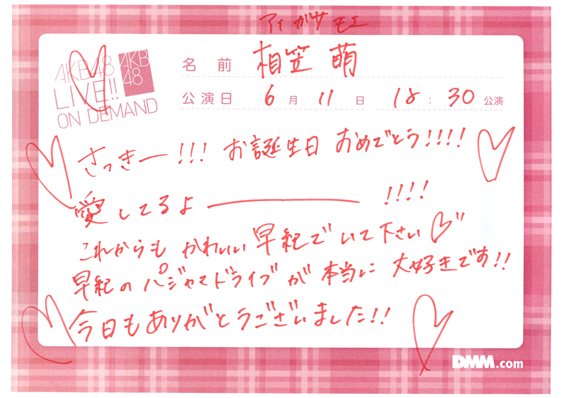 アイガサ モエ
AKB48
LIVE!!
ON DEMAND
AKB
48
名前 相笠 萌
公演日 6月 11日 18:30公演
さっきー!!! お誕生日 おめでとう!!!!
愛してるよ―――!!!!
これからも かわいい 早紀でいて下さい♡
早紀の パジャマドライブが 本当に 大好きです!!
今日もありがとうございました!!
DMM.com